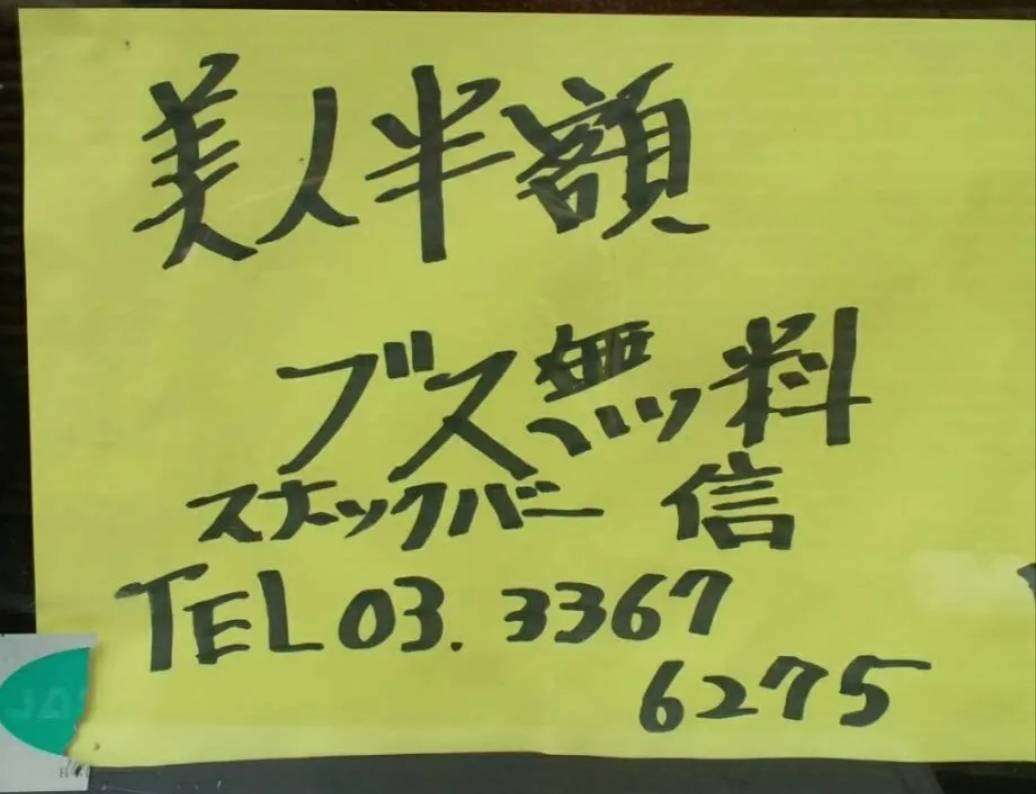 美人半額
ブス無料
スナックバー 信
TEL 03. 3367
6275